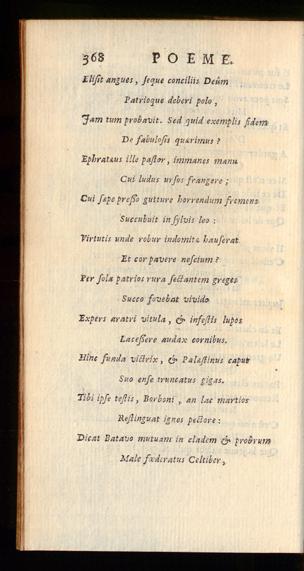 368 POEME.
Elisit angues, seque conciliis Deûm
Patrioque deberi polo,
Jam tum probavit. Sed quid exemplis fidem
De fabulosis quærimus?
Ephratæus ille pastor, immanes manu
Cui ludus ursos frangere;
Cui sæpe presso gutture horrendum fremens
Succubuit in sylvis leo:
Virtutis unde robur indomitæ hauserat
Et cor pavere nescium?
Per sola patrios rura sectantem greges
Succo fovebat vivido
Expers aratri vitula, & infestis lupos
Lacessere audax cornibus.
Hinc funda victrix, & Palæstinus caput
Suo ense truncatus gigas.
Tibi ipse testis, Borboni, an lac martios
Restinguat ignos pectore:
Dicat Batavo mutuam in cladem & probrum
Male fœderatus Celtiber,